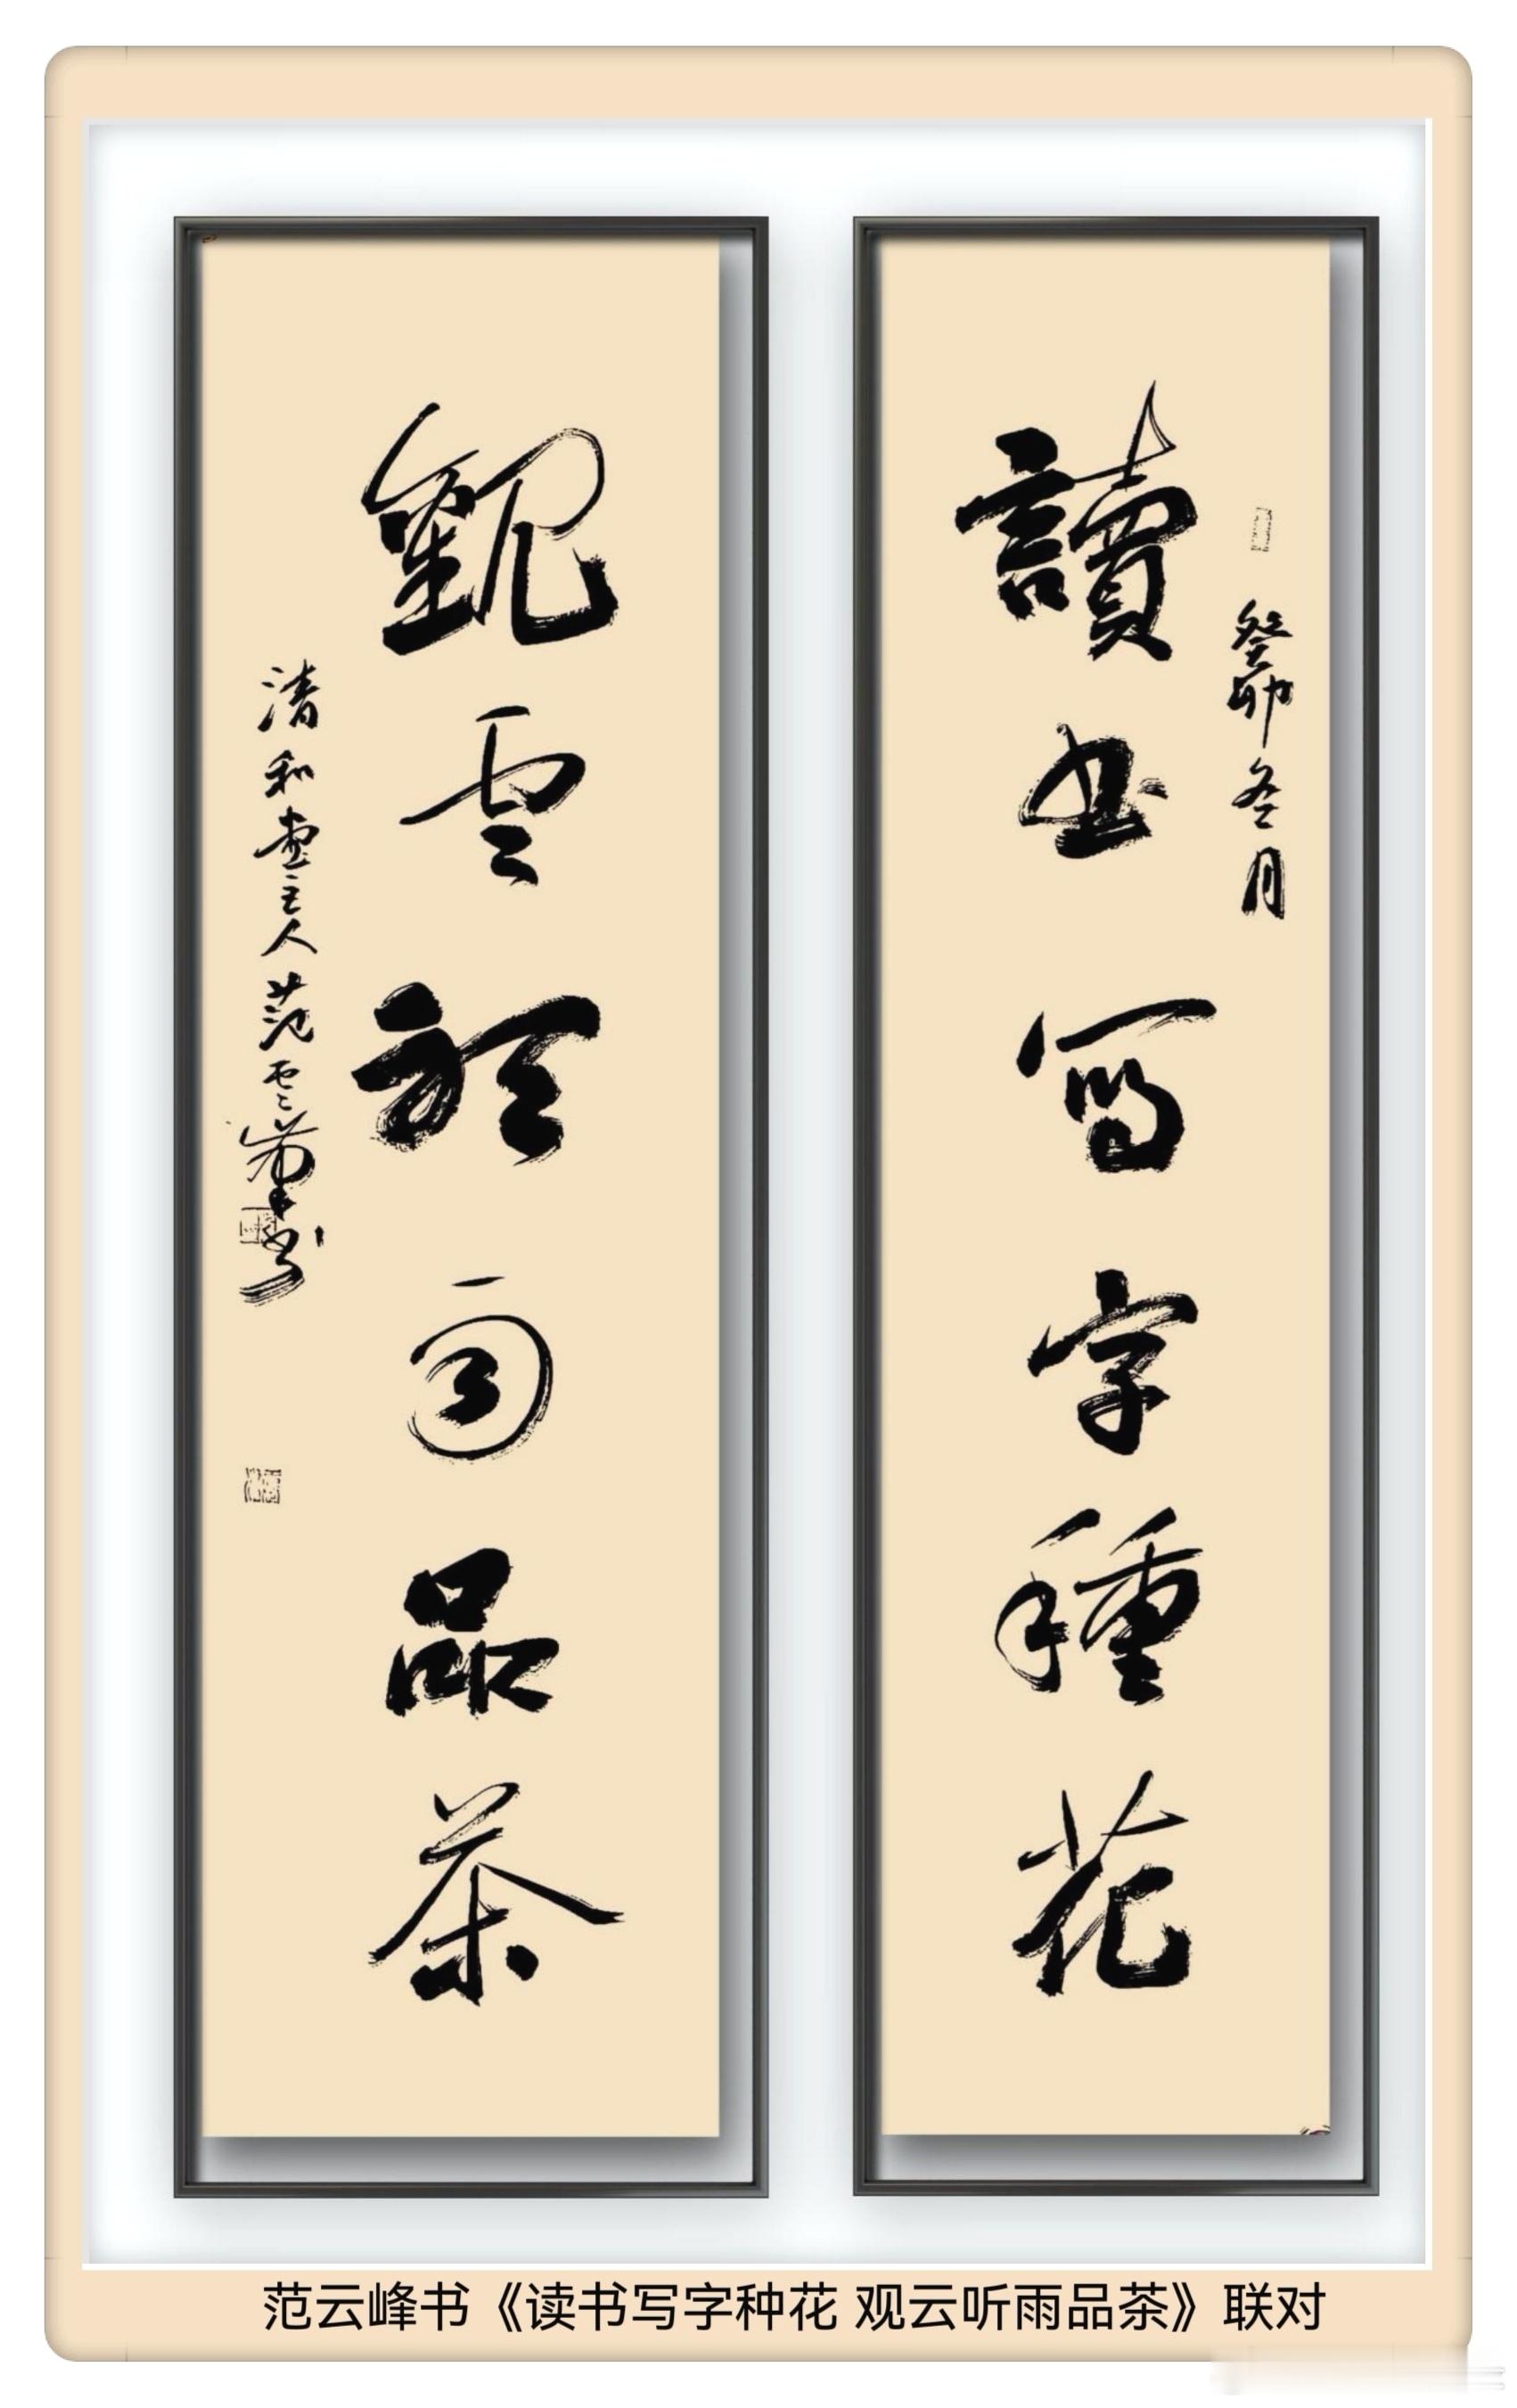 讀书寫字種花
癸卯冬月
觀雲聽雨品茶
清和堂主人范雲峰书
范云峰书《读书写字种花 观云听雨品茶》联对